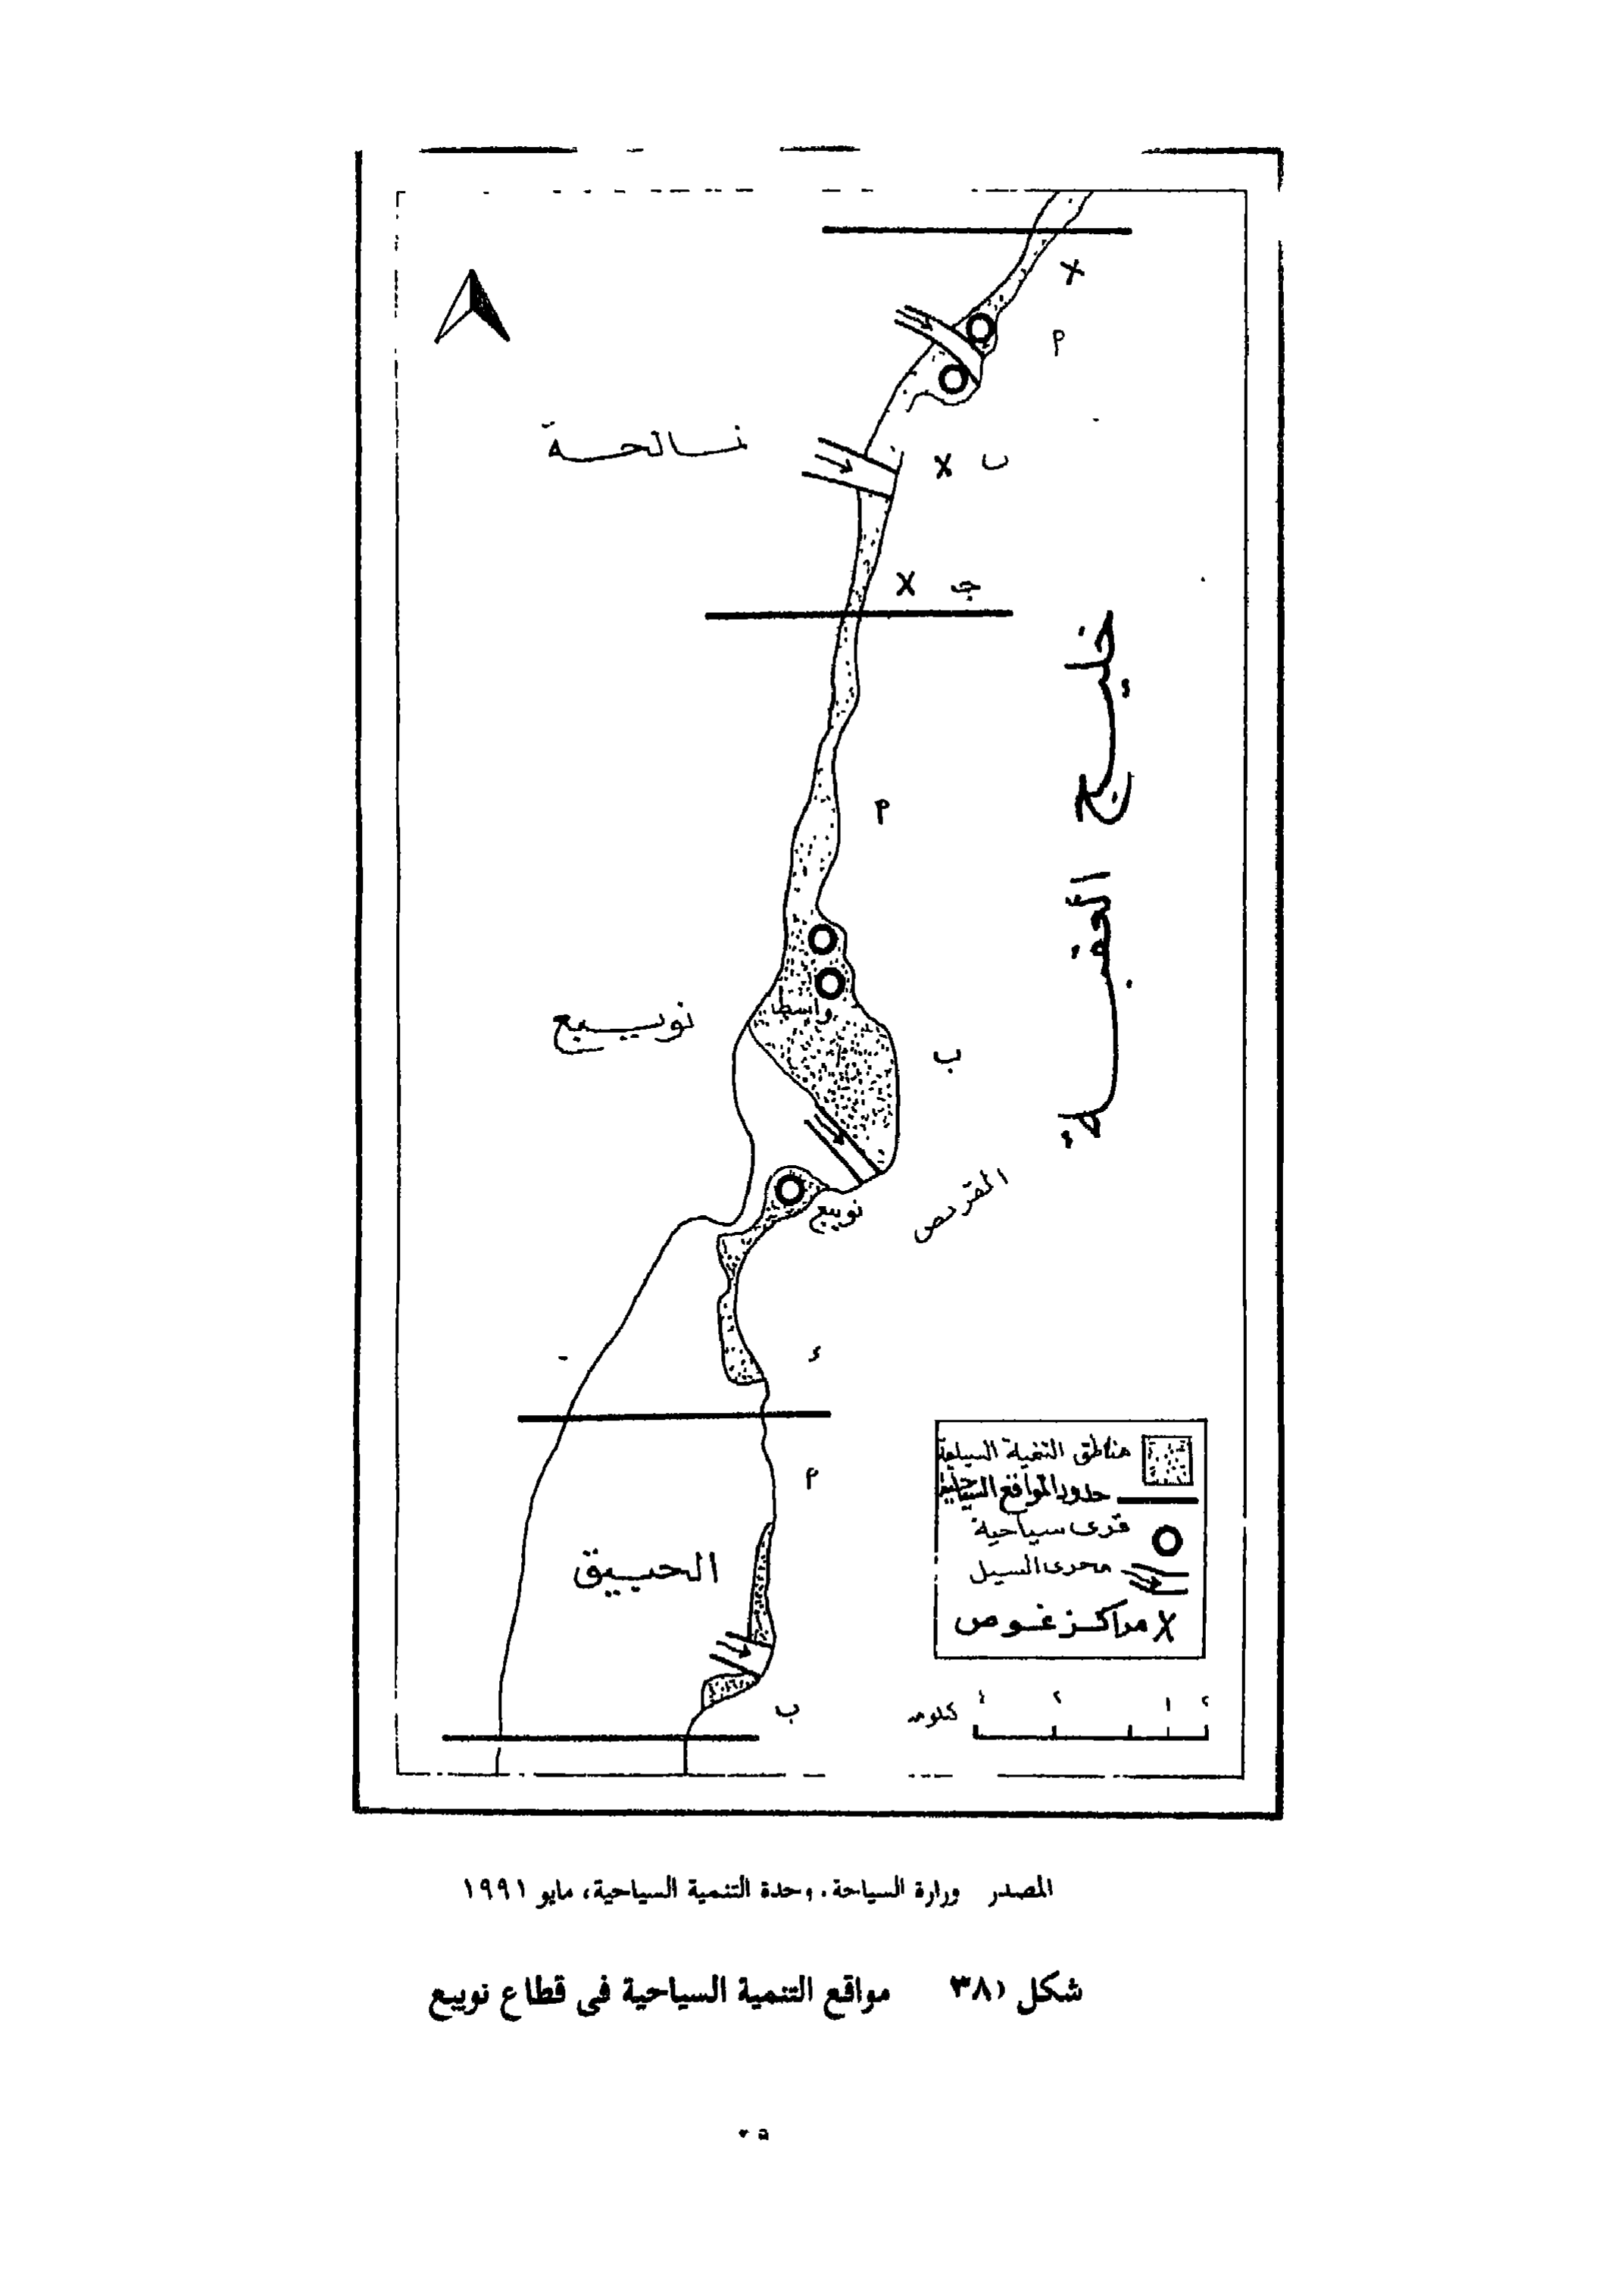 م
نالحة
ب
ج
خليج العقبة
م
واسط
نويبع
ب
المقريص
نويبع
د
م
الحبيق
ب
مناطق التنمية السياحية
حدود المواقع السياحية
قرى سياحية
مجرى السيل
X مراكز غوص
كيلومتر ٤ ٢ ١ ٢
المصدر وزارة السياحة، وحدة التنمية السياحية، مايو ١٩٩١
شكل (٣٨ مواقع التنمية السياحية فى قطاع نويبع